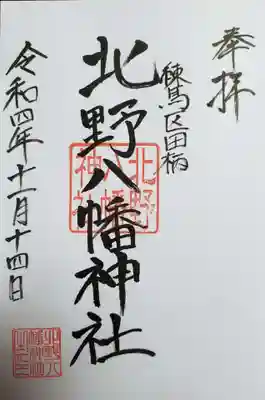 奉拝
練馬区田柄
北野八幡神社
令和四年十一月十四日
北野
八幡
神社